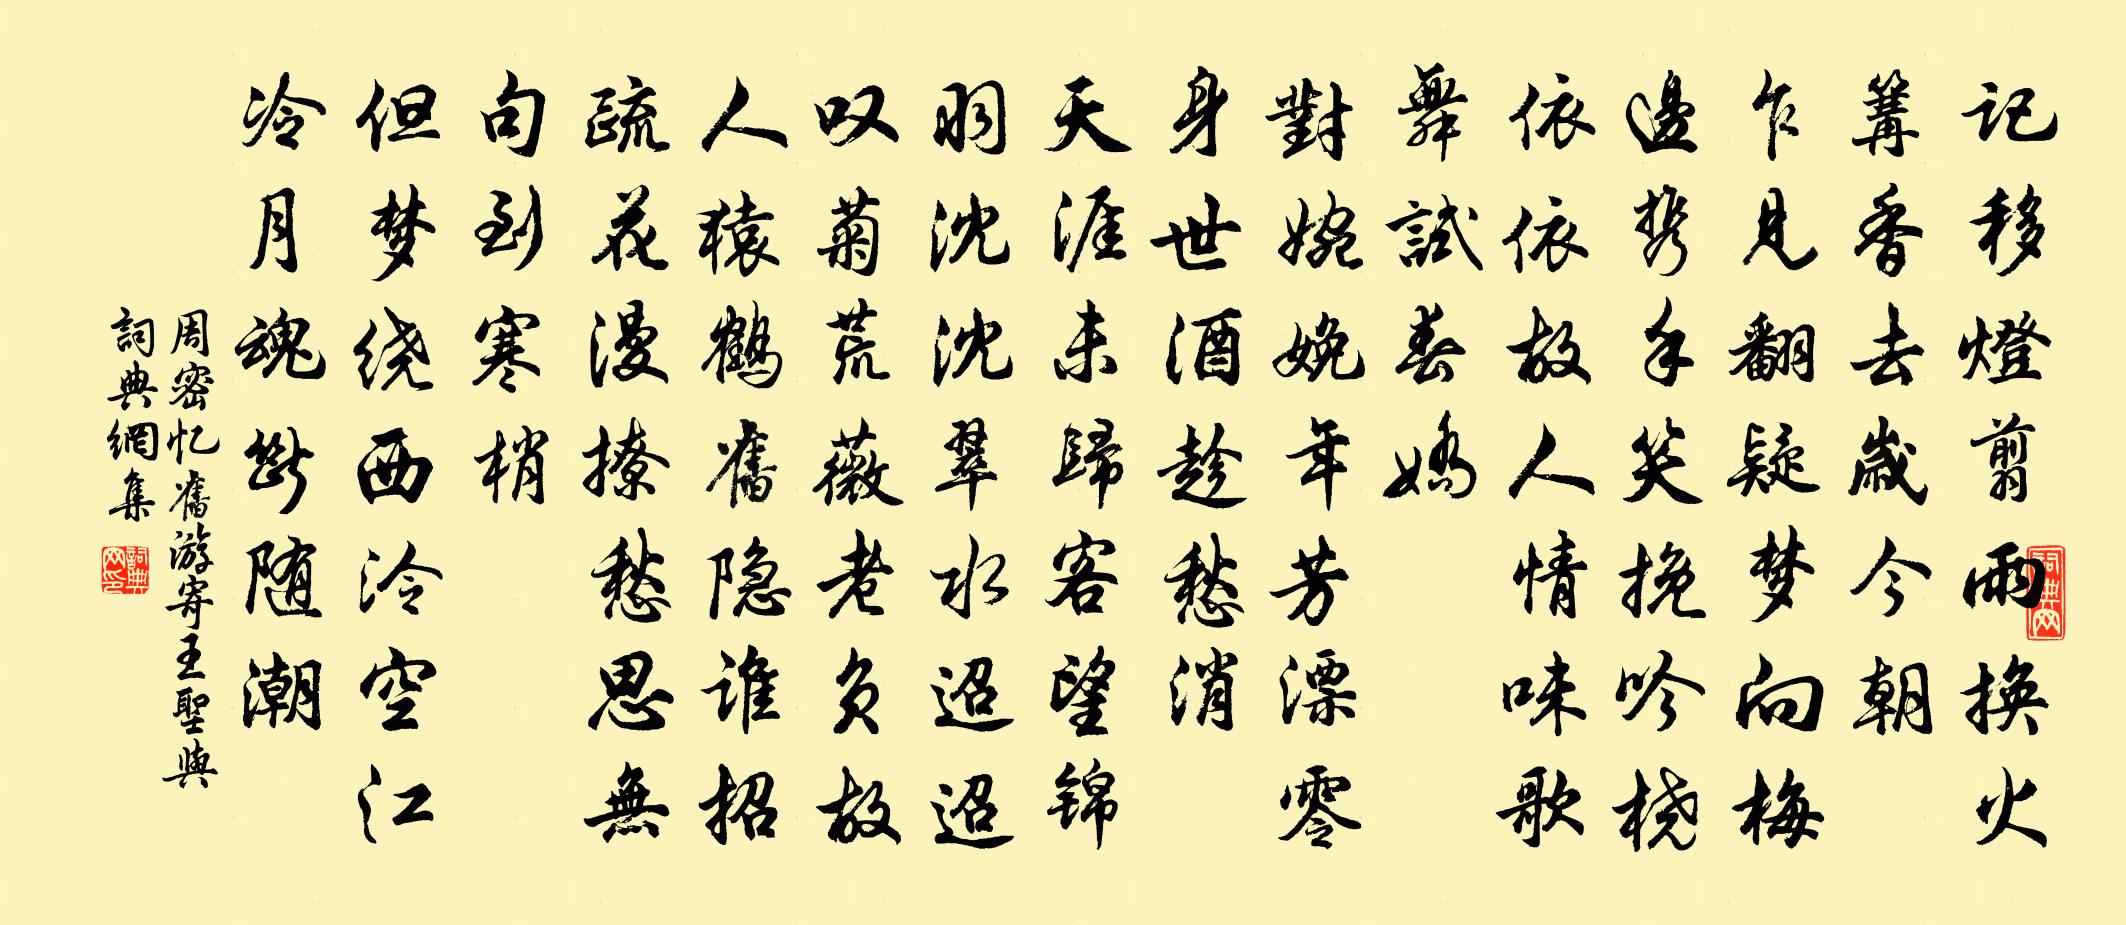 记移燈剪雨换火
篝香去歲今朝
乍见翻疑梦向梅
邊携手笑挽吟桡
依依故人情味歌
舞試春嬌
對婉娩年芳漂零
身世酒趁愁消
天涯未歸客望锦
羽沈沈翠水迢迢
叹菊荒薇老负故
人猿鶴舊隐谁招
疏花漫撩愁思無
句到寒梢
但梦绕西泠空江
冷月魂斷随潮
周密忆舊游寄王聖與
詞典網集
詞典网印
词典网